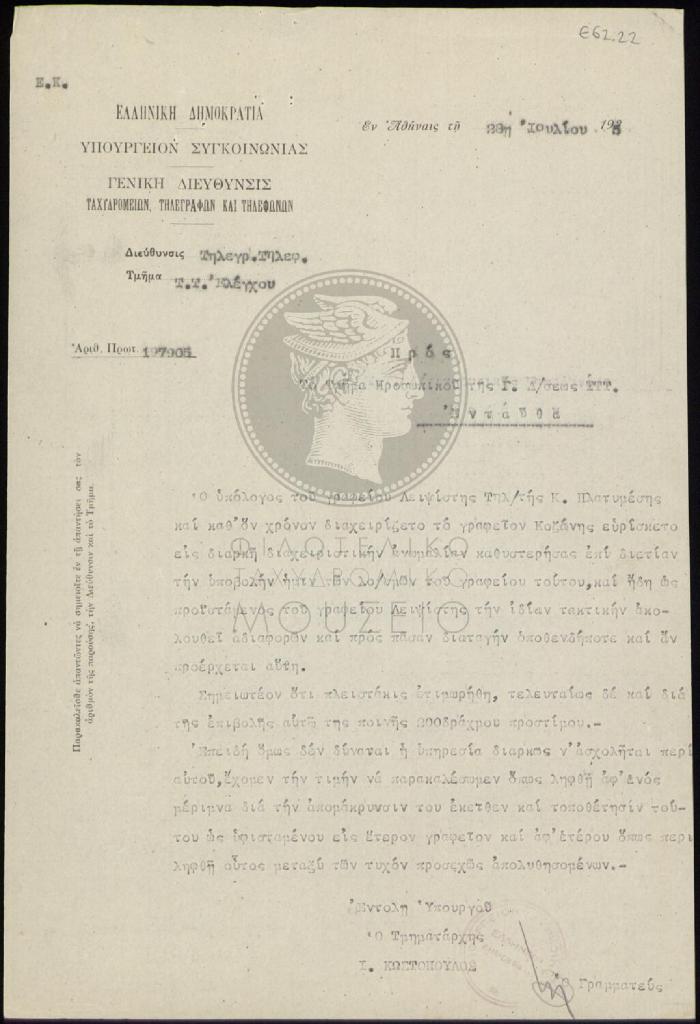 Ε62.22
Ε.Κ.
ΕΛΛΗΝΙΚΗ ΔΗΜΟΚΡΑΤΙΑ
ΥΠΟΥΡΓΕΙΟΝ ΣΥΓΚΟΙΝΩΝΙΑΣ
ΓΕΝΙΚΗ ΔΙΕΥΘΥΝΣΙΣ
ΤΑΧΥΔΡΟΜΕΙΩΝ, ΤΗΛΕΓΡΑΦΩΝ ΚΑΙ ΤΗΛΕΦΩΝΩΝ
Ἐν Ἀθήναις τῇ 29ῃ Ἰουλίου 192
Διεύθυνσις Τηλεγρ.Τηλεφ.
Τμῆμα Τ.Τ.Ἐλέγχου
Ἀριθ. Πρωτ. 197905
Πρός
Τό Τμῆμα Προσωπικοῦ τῆς Γ. Δ/σεως ΤΤΤ.
Ἐνταῦθα
Παρακαλεῖσθε ἀπαντῶντες νά σημειοῦτε ἐν τῇ ἀπαντήσει σας τόν
ἀριθμόν τῆς παρούσης, τήν Διεύθυνσιν καί τό Τμῆμα.
Ὁ ὑπόλογος τοῦ γραφείου Λειψίστης Τηλ/τής Κ. Πλατυμέσης
καί καθ'ὅν χρόνον διεχειρίζετο τό γραφεῖον Κοζάνης εὑρίσκετο
εἰς διαρκῆ διαχειριστικήν ἀνωμαλίαν καθυστερήσας ἐπί διετίαν
τήν ὑποβολήν ἡμῖν τῶν λο/σμῶν τοῦ γραφείου τούτου,καί ἤδη ὡς
προϊστάμενος τοῦ γραφείου Λειψίστης τήν ἰδίαν τακτικήν ἀκο-
λουθεῖ ἀδιαφορῶν καί πρός πᾶσαν διαταγήν ὁποθενδήποτε καί ἄν
προέρχεται αὕτη.
Σημειωτέον ὅτι πλειστάκις ἐτιμωρήθη, τελευταίως δέ καί διά
τῆς ἐπιβολῆς αὐτῷ τῆς ποινῆς 200δράχμου προστίμου.-
Ἐπειδή ὅμως δέν δύναται ἡ ὑπηρεσία διαρκῶς ν'ἀσχολῆται περί
αὐτοῦ,ἔχομεν τήν τιμήν νά παρακαλέσωμεν ὅπως ληφθῇ ἀφ'ἑνός
μέριμνα διά τήν ἀπομάκρυνσίν του ἐκεῖθεν καί τοποθέτησίν τού-
του ὡς ὑφισταμένου εἰς ἕτερον γραφεῖον καί ἀφ'ἑτέρου ὅπως περι
ληφθῇ οὗτος μεταξύ τῶν τυχόν προσεχῶς ἀπολυθησομένων.-
Ἐντολῇ Ὑπουργοῦ
Ὁ Τμηματάρχης
Ι. ΚΩΣΤΟΠΟΥΛΟΣ
Ὁ Γραμματεύς
ΦΙΛΟΤΕΛΙΚΟ
ΤΑΧΥΔΡΟΜΙΚΟ
ΜΟΥΣΕΙΟ